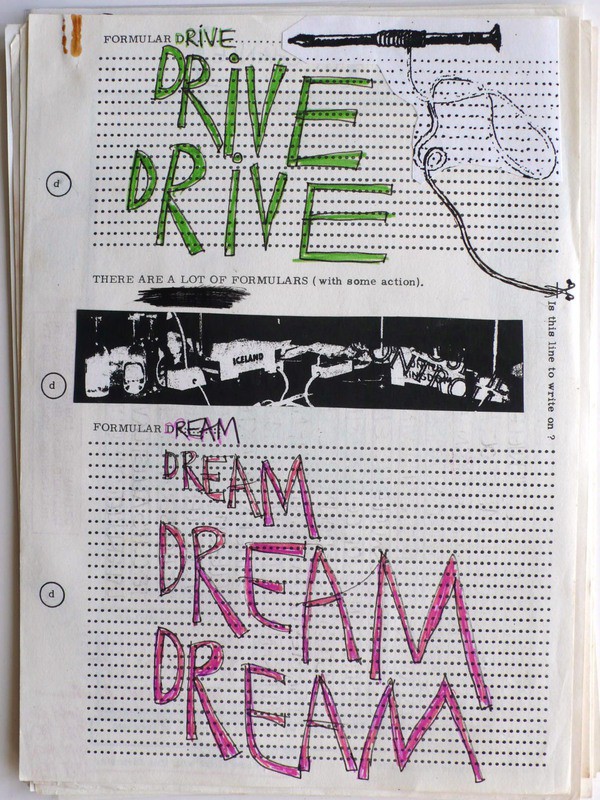 FORMULAR DRIVE
DRiVE
DRiVE
d
THERE ARE A LOT OF FORMULARS (with some action).
Is this line to write on ?
ICELAND
d
FORMULAR DREAM
DREAM
DREAM
d
DREAM